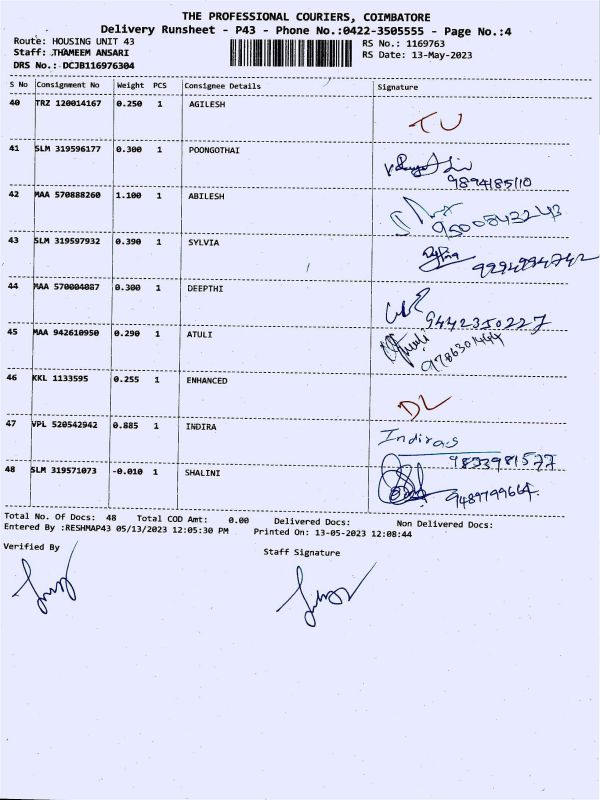 THE PROFESSIONAL COURIERS, COIMBATORE
Delivery Runsheet - P43 - Phone No.:0422-3505555 - Page No.:4
Route: HOUSING UNIT 43 RS No.: 1169763
Staff: THAMEEM ANSARI RS Date: 13-May-2023
DRS No.: DCJB116976304
S No Consignment No Weight PCS Consignee Details Signature
40 TRZ 120014167 0.250 1 AGILESH
41 SLM 319596177 0.300 1 POONGOTHAI
9894185110
42 MAA 570888260 1.100 1 ABILESH
9500543243
43 SLM 319597932 0.390 1 SYLVIA
44 MAA 570004087 0.300 1 DEEPTHI
9442350227
45 MAA 942610950 0.290 1 ATULI
9786301464
46 KKL 1133595 0.255 1 ENHANCED
DL
47 VPL 520542942 0.885 1 INDIRA
Indira.S
9833981577
48 SLM 319571073 -0.010 1 SHALINI
9489799664.
Total No. Of Docs: 48 Total COD Amt: 0.00 Delivered Docs: Non Delivered Docs:
Entered By :RESHMAP43 05/13/2023 12:05:30 PM Printed On: 13-05-2023 12:08:44
Verified By Staff Signature